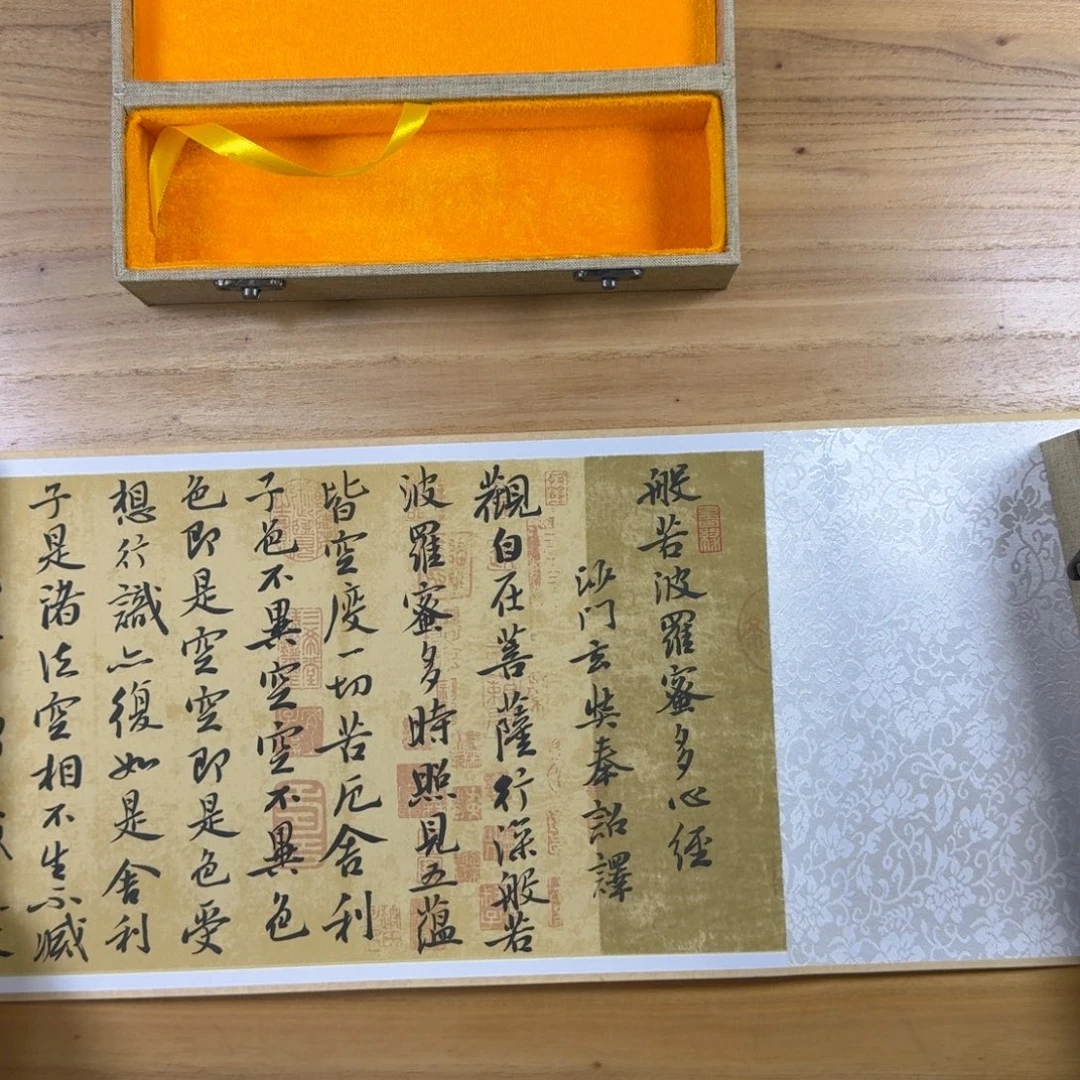 般若波羅蜜多心經
沙门玄奘奉詔譯
觀自在菩薩行深般若
波羅蜜多時照見五蘊
皆空度一切苦厄舍利
子色不異空空不異色
色即是空空即是色受
想行識亦復如是舍利
子是諸法空相不生不滅